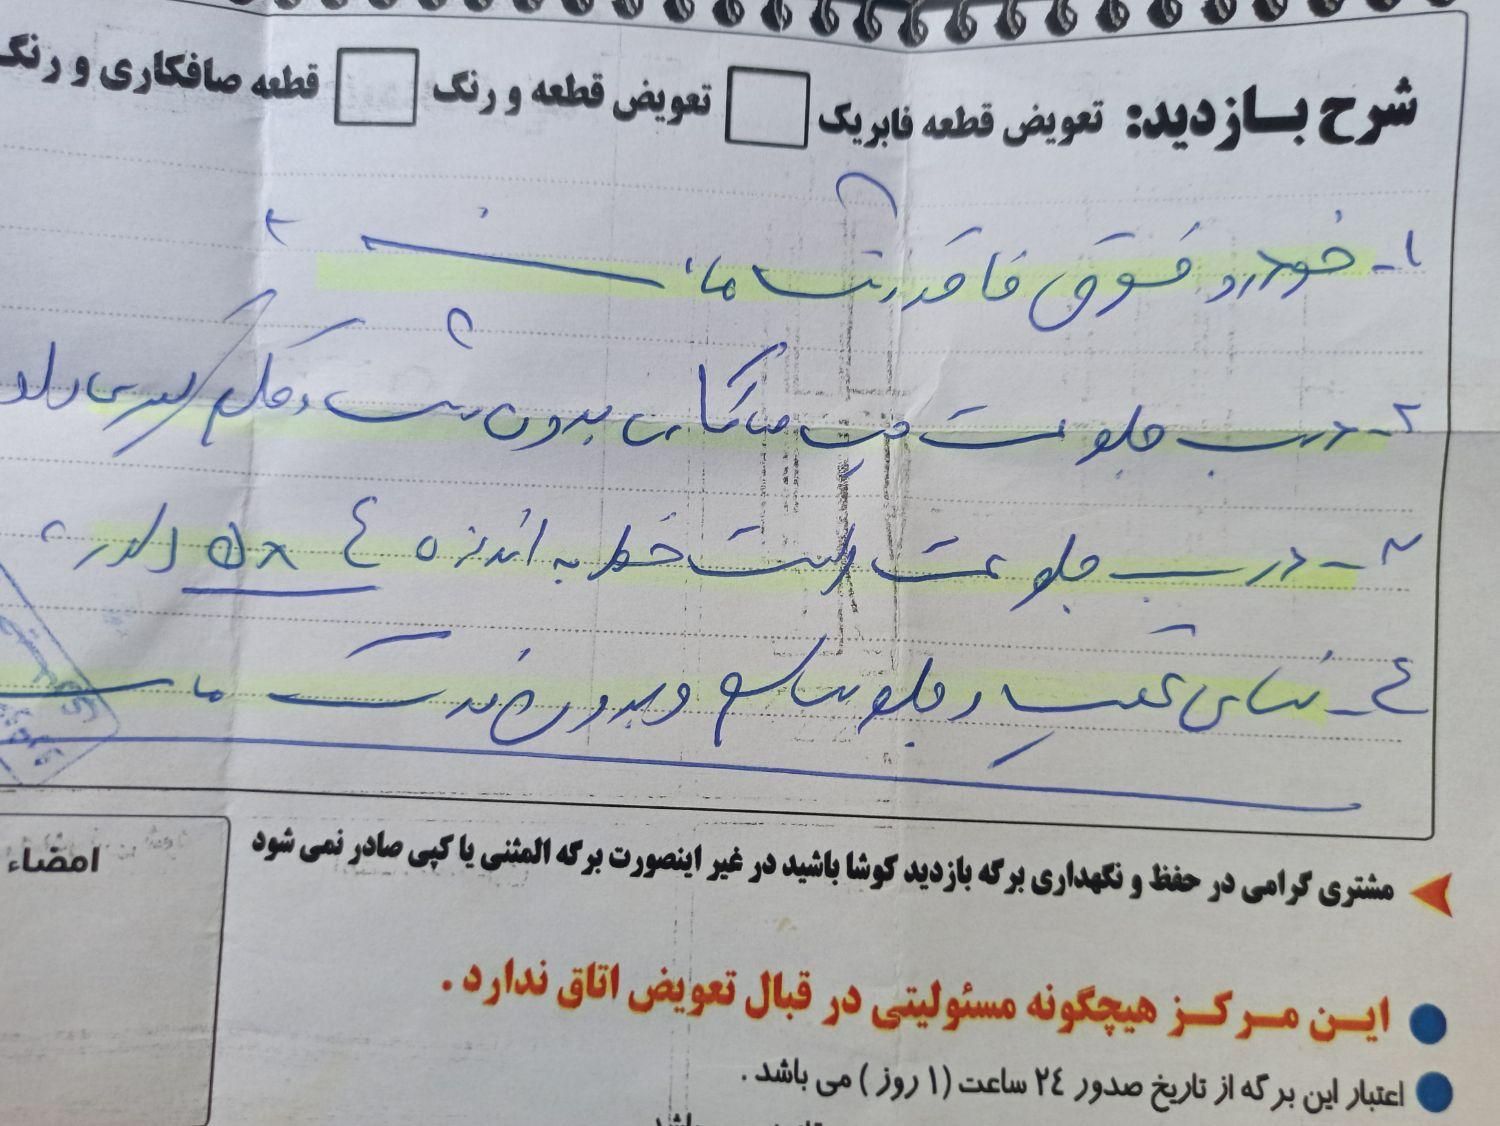 شرح بازدید: تعویض قطعه فابریک تعویض قطعه و رنگ قطعه صافکاری و رنگ
۱- خودرو فوق فاقد رنگ می باشد
۲- درب جلو سمت چپ صافکاری بدون رنگ و قلم گیری دارد
۳- درب جلو سمت راست خط به اندازه ۴ × ۵ دارد
۴- شاسی عقب و جلو سالم و بدون ضربت
امضاء
مشتری گرامی در حفظ و نگهداری برگه بازدید کوشا باشید در غیر اینصورت برگه المثنی یا کپی صادر نمی شود
ایـن مـرکـز هیچگونه مسئولیتی در قبال تعویض اتاق ندارد .
اعتبار این برگه از تاریخ صدور ۲۴ ساعت (۱ روز ) می باشد .